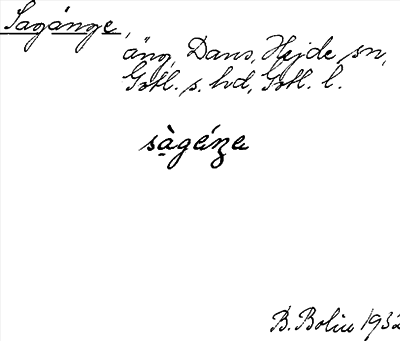 Sagänge,
äng, Dans, Hejde sn,
Gotl. s. hd, Gotl. l.
B. Bolin 1932